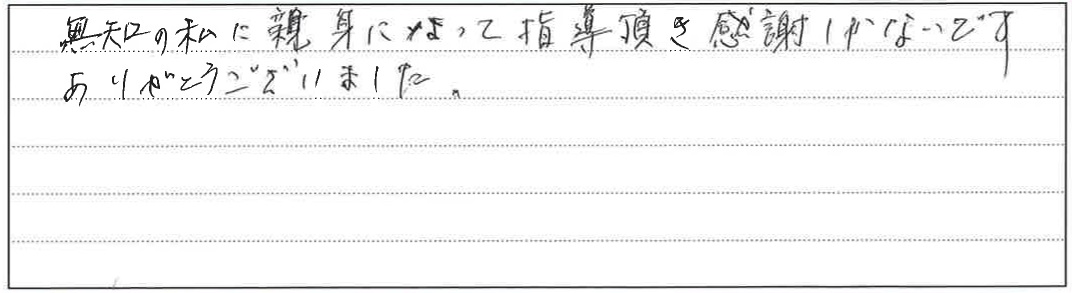 無知の私に親身になって指導頂き感謝しかないです
ありがとうございました。